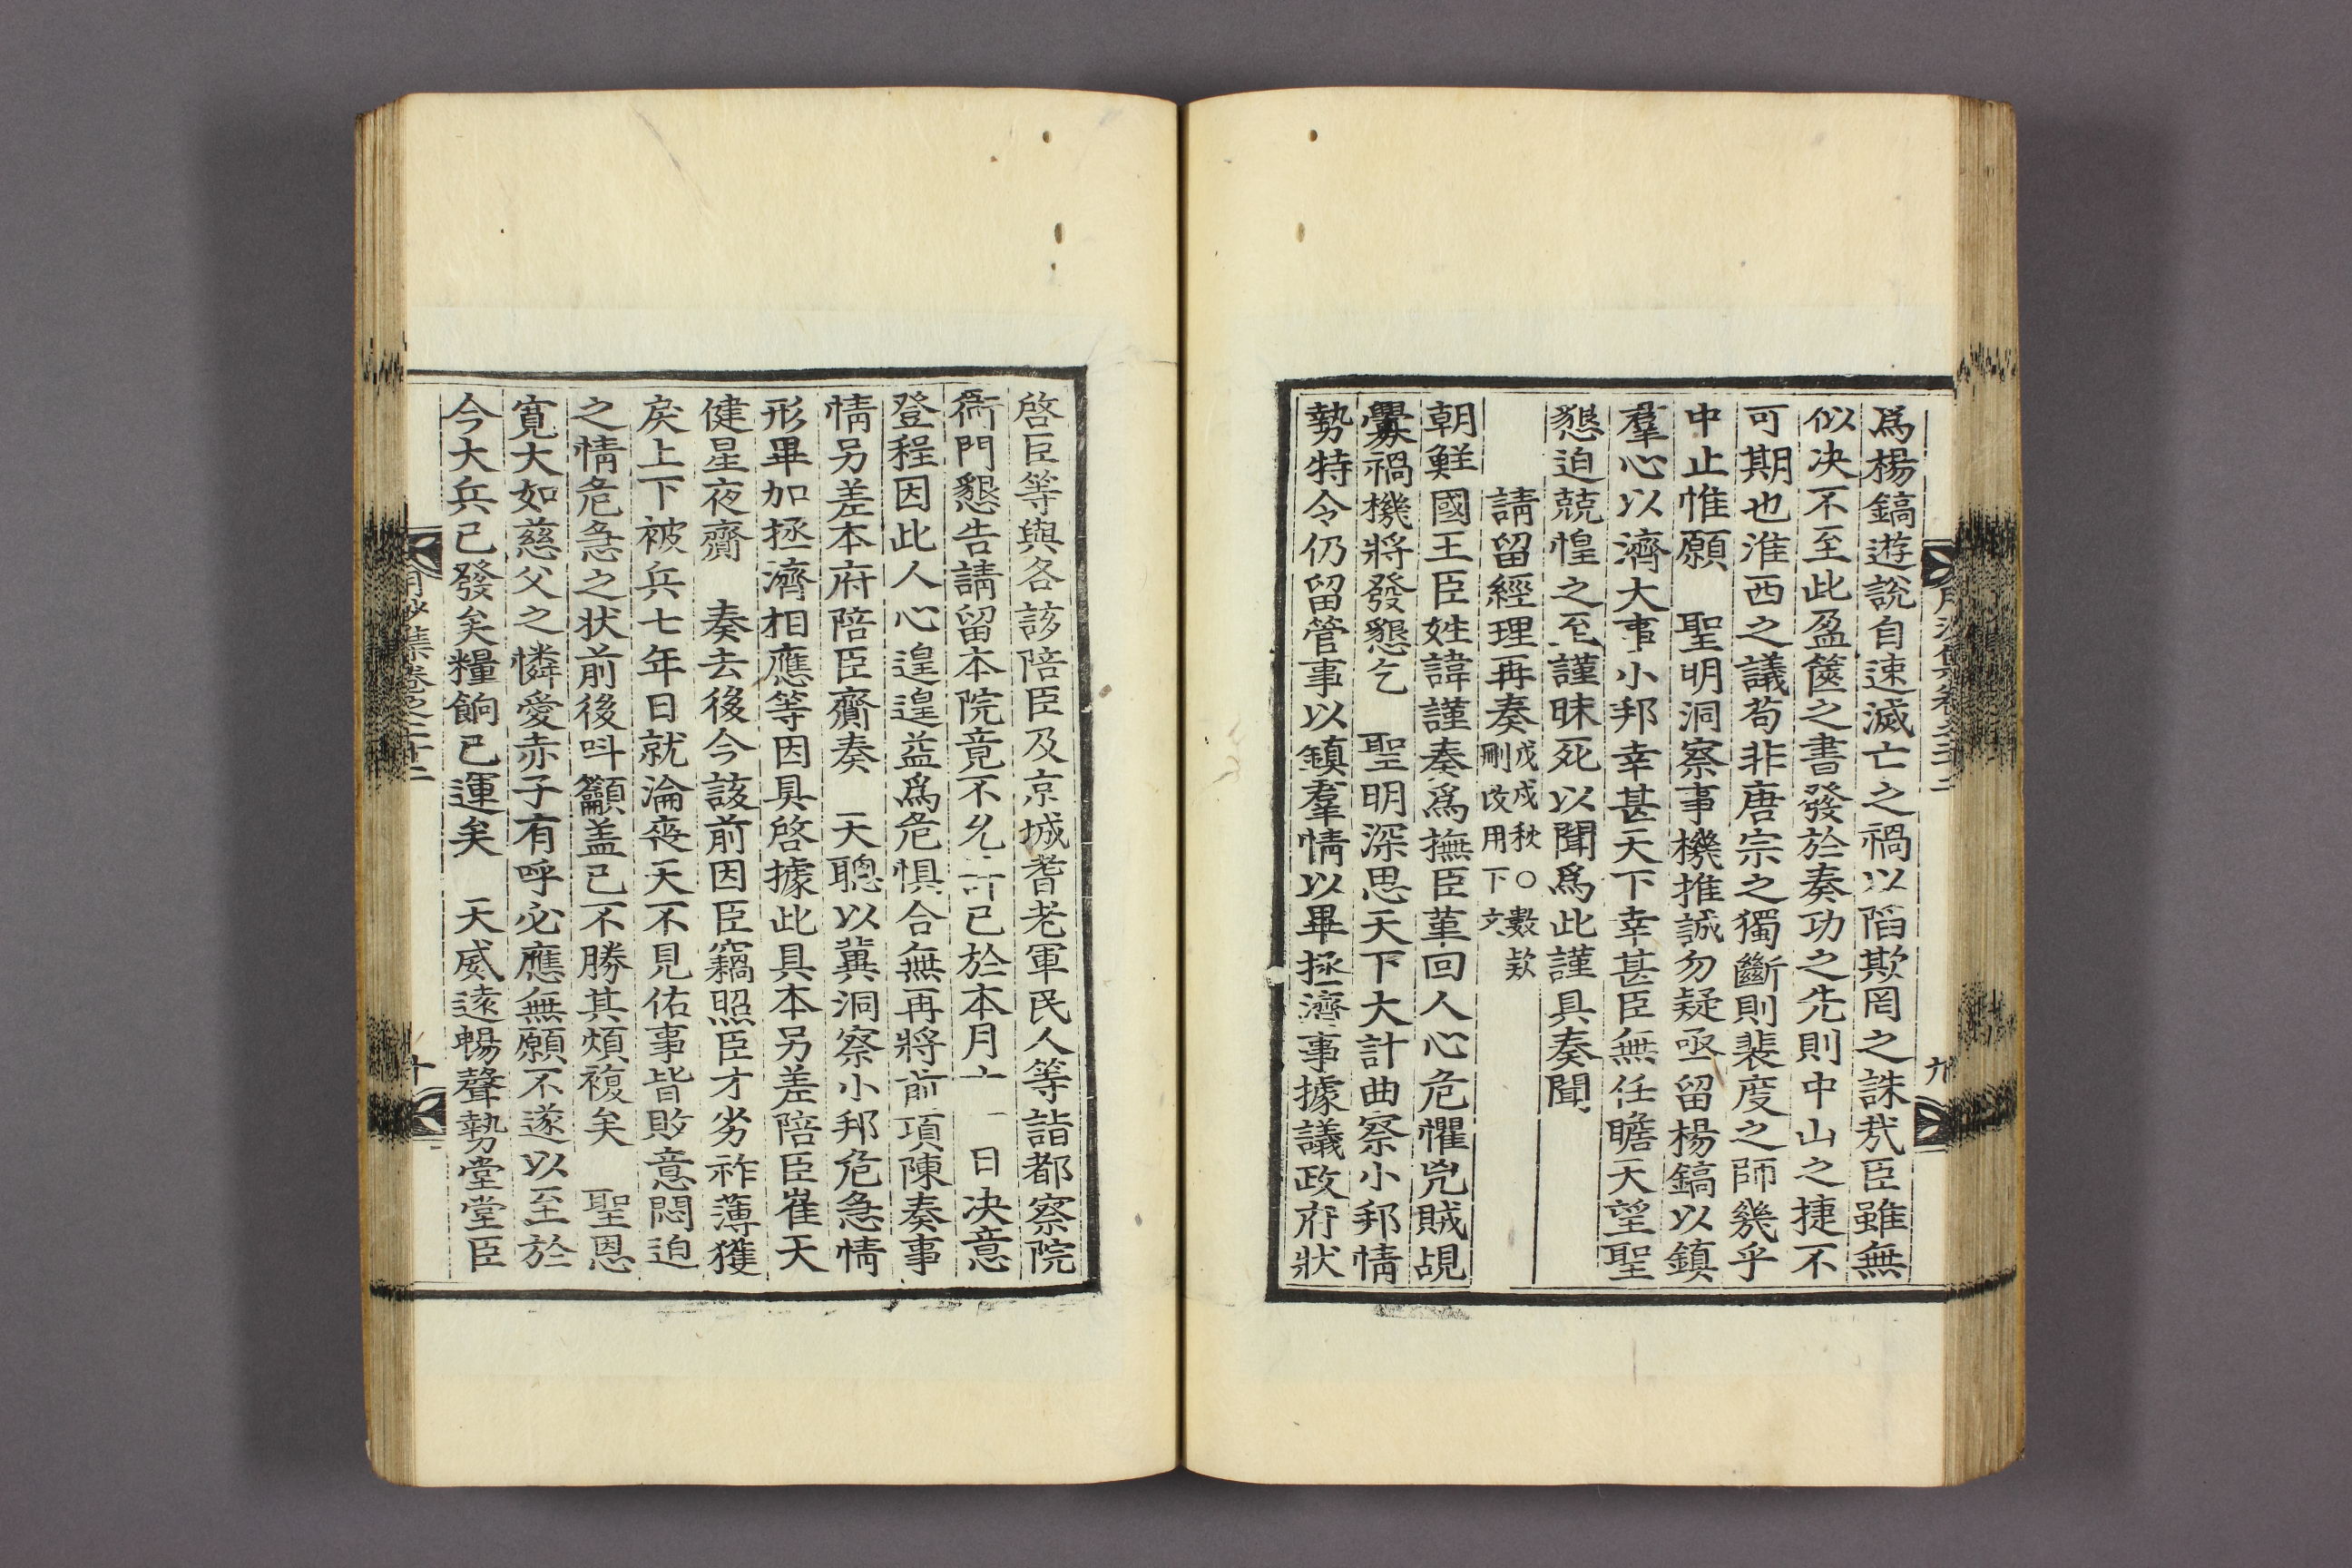 爲楊鎬遊說自速滅亡之禍以陷欺罔之誅㦲臣雖無
似决不至此盈篋之書發於奏功之先則中山之捷不
可期也淮西之議苟非唐宗之獨斷則裴度之師幾乎
中止惟願 聖明洞察事機推誠勿疑亟留楊鎬以鎮
羣心以濟大事小邦幸甚天下幸甚臣無任瞻天望聖
懇迫兢惶之至謹昧死以聞爲此謹具奏聞
請留經理再奏
戊戌秋○數款
刪改用下文
朝鮮國王臣姓諱謹奏爲撫臣菫回人心危懼兇賊覘
釁禍機將發懇乞 聖明深思天下大計曲察小邦情
勢特令仍留管事以鎮羣情以畢拯濟事據議政府狀
啓臣等與各該陪臣及京城耆老軍民人等詣都察院
衙門懇告請留本院竟不允 已於本月 日决意
登程因此人心遑遑益爲危惧合無再將前項陳奏事
情另差本府陪臣齎奏 天聰以冀洞察小邦危急情
形畢加拯濟相應等因具啓據此具本另差陪臣崔天
健星夜齎 奏去後今該前因臣竊照臣才劣祚薄獲
戾上下被兵七年日就淪喪天不見佑事皆敗意悶迫
之情危急之状前後呌籲盖已不勝其煩複矣 聖恩
寛大如慈父之憐愛赤子有呼必應無願不遂以至於
今大兵已發矣糧餉已運矣 天威遠暢聲勢堂堂臣
集卷之二十二
九
十